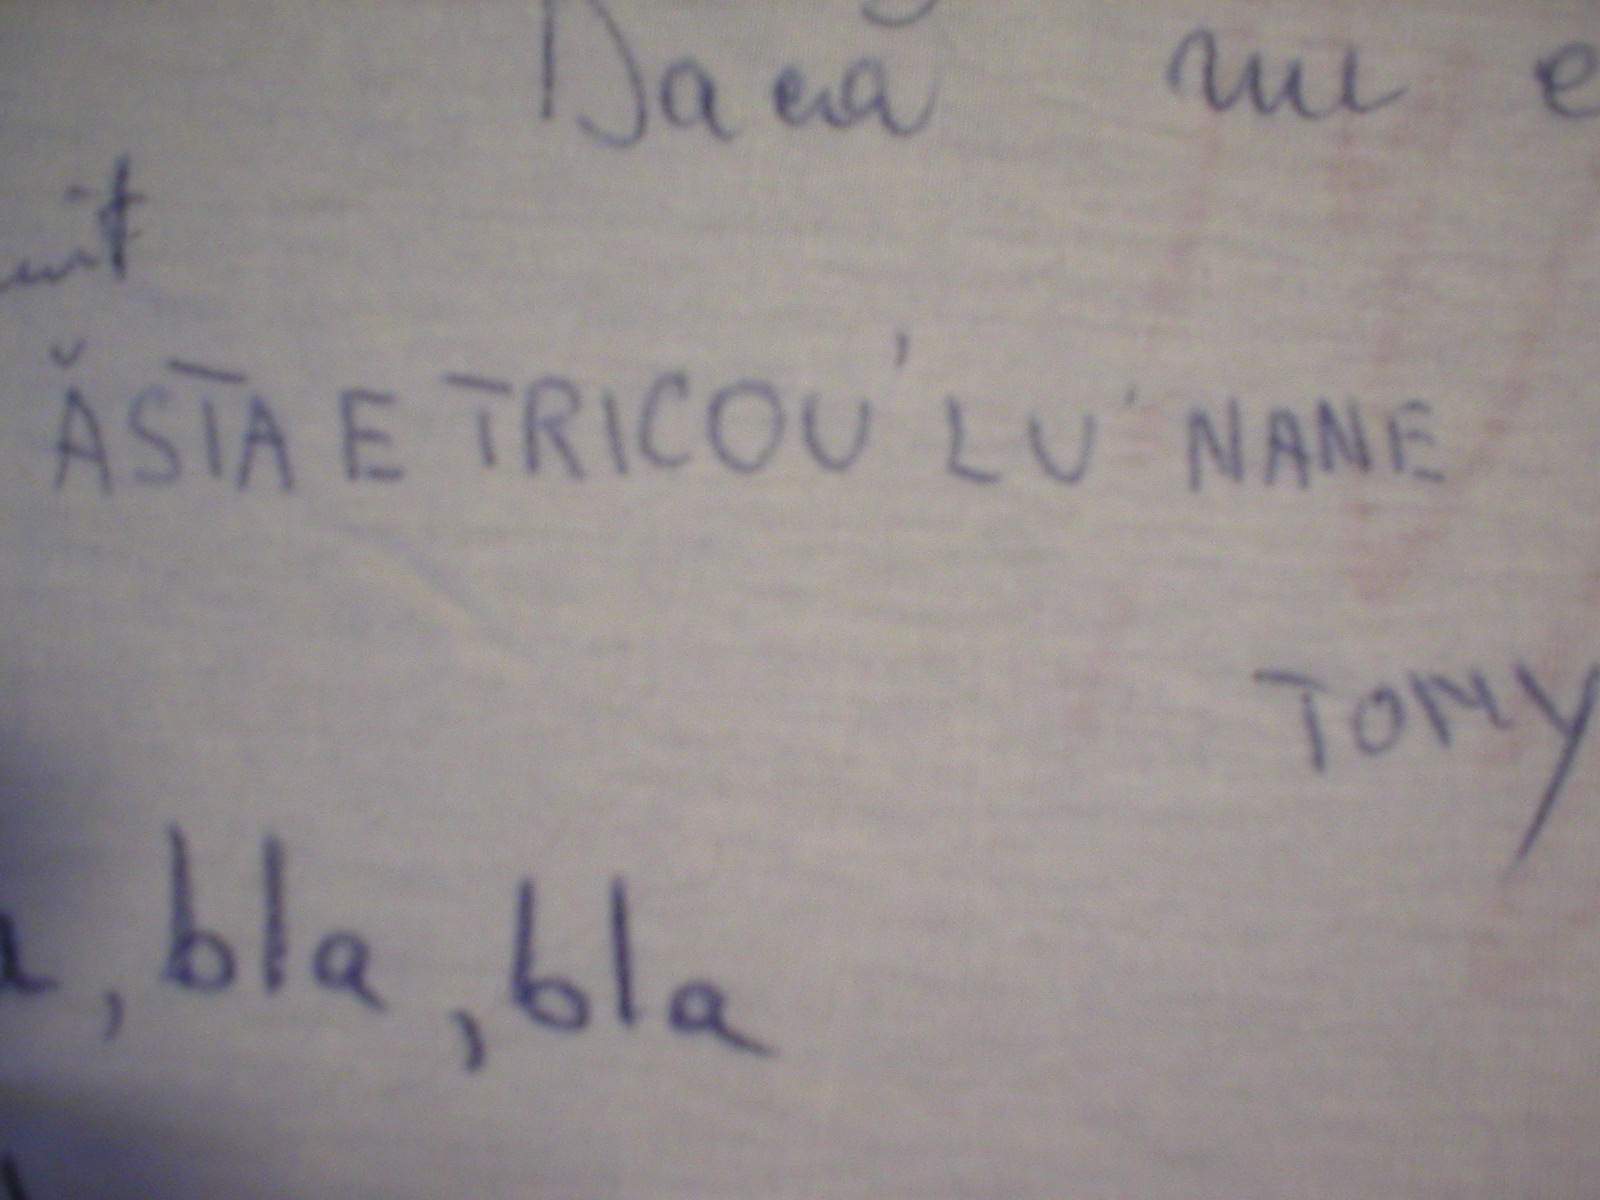 Dacă
ĂSTA E TRICOU' LU' NANE
TOMY
, bla , bla